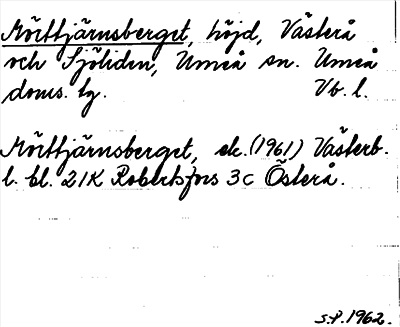 Mörttjärnsberget, höjd, Västerå
och Sjöliden, Umeå sn. Umeå
doms. lg. Vb. l.
Mörttjärnsberget, ek. (1961) Västerb.
l. bl. 21K Robertsfors 3c Österå.
S.P. 1962.